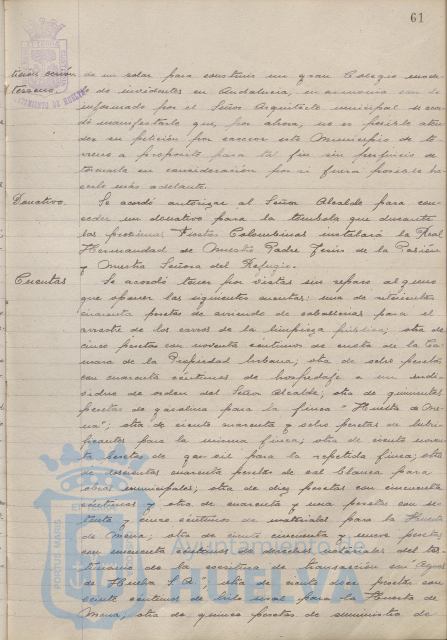 61
ticion cesión de un solar para construir un gran Colegio mode
terreno. lo de invidentes en Andalucía, en armonía con lo
informado por el Señor Arquitecto municipal se acor
dó manifestarle que, por ahora, no es posible aten
der su petición por carecer este Municipio de te
rreno a propósito para tal fin sin perjuicio de
tomarla en consideración por si fuera posible ha
cerlo más adelante.
Donativo. Se acordó autorizar al Señor Alcalde para con
ceder un donativo para la tómbola que durante
las próximas Fiestas Colombinas instalará la Real
Hermandad de Nuestro Padre Jesús de la Pasión
y Nuestra Señora del Refugio.
Cuentas Se acordó tener por vistas sin reparo alguno
que oponer las siguientes cuentas: una de
cincuenta pesetas de arriendo de caballerías para el
arrastre de los carros de la limpieza pública; otra de
cinco pesetas con noventa céntimos de cuota de la Cá
mara de la Propiedad Urbana; otra de pesetas
con cuarenta céntimos de hospedaje a un indi
viduo de orden del Señor Alcalde; otra de quinientas
pesetas de gasolina para la finca "Huerta de Me
na"; otra de ciento cuarenta y ocho pesetas de lubri
ficantes para la misma finca; otra de ciento noven
ta pesetas de gas-oil para la repetida finca; otra
de doscientas cuarenta pesetas de cal blanca para
obras municipales; otra de diez pesetas con cincuenta
céntimos y otra de cuarenta y una pesetas con se
tenta y cinco céntimos de materiales para la Huerta
de Mena; otra de ciento cincuenta y nueve pesetas
con cincuenta céntimos de derechos notariales del tes
timonio de la escritura de transacción con "Aguas
de Huelva S.A."; otra de ciento doce pesetas con
veinte céntimos de para la Huerta de
Mena; otra de quince pesetas de suministro de
Ayuntamiento de
HUELVA
PORTUS MARIS
AYUNTAMIENTO DE HUELVA